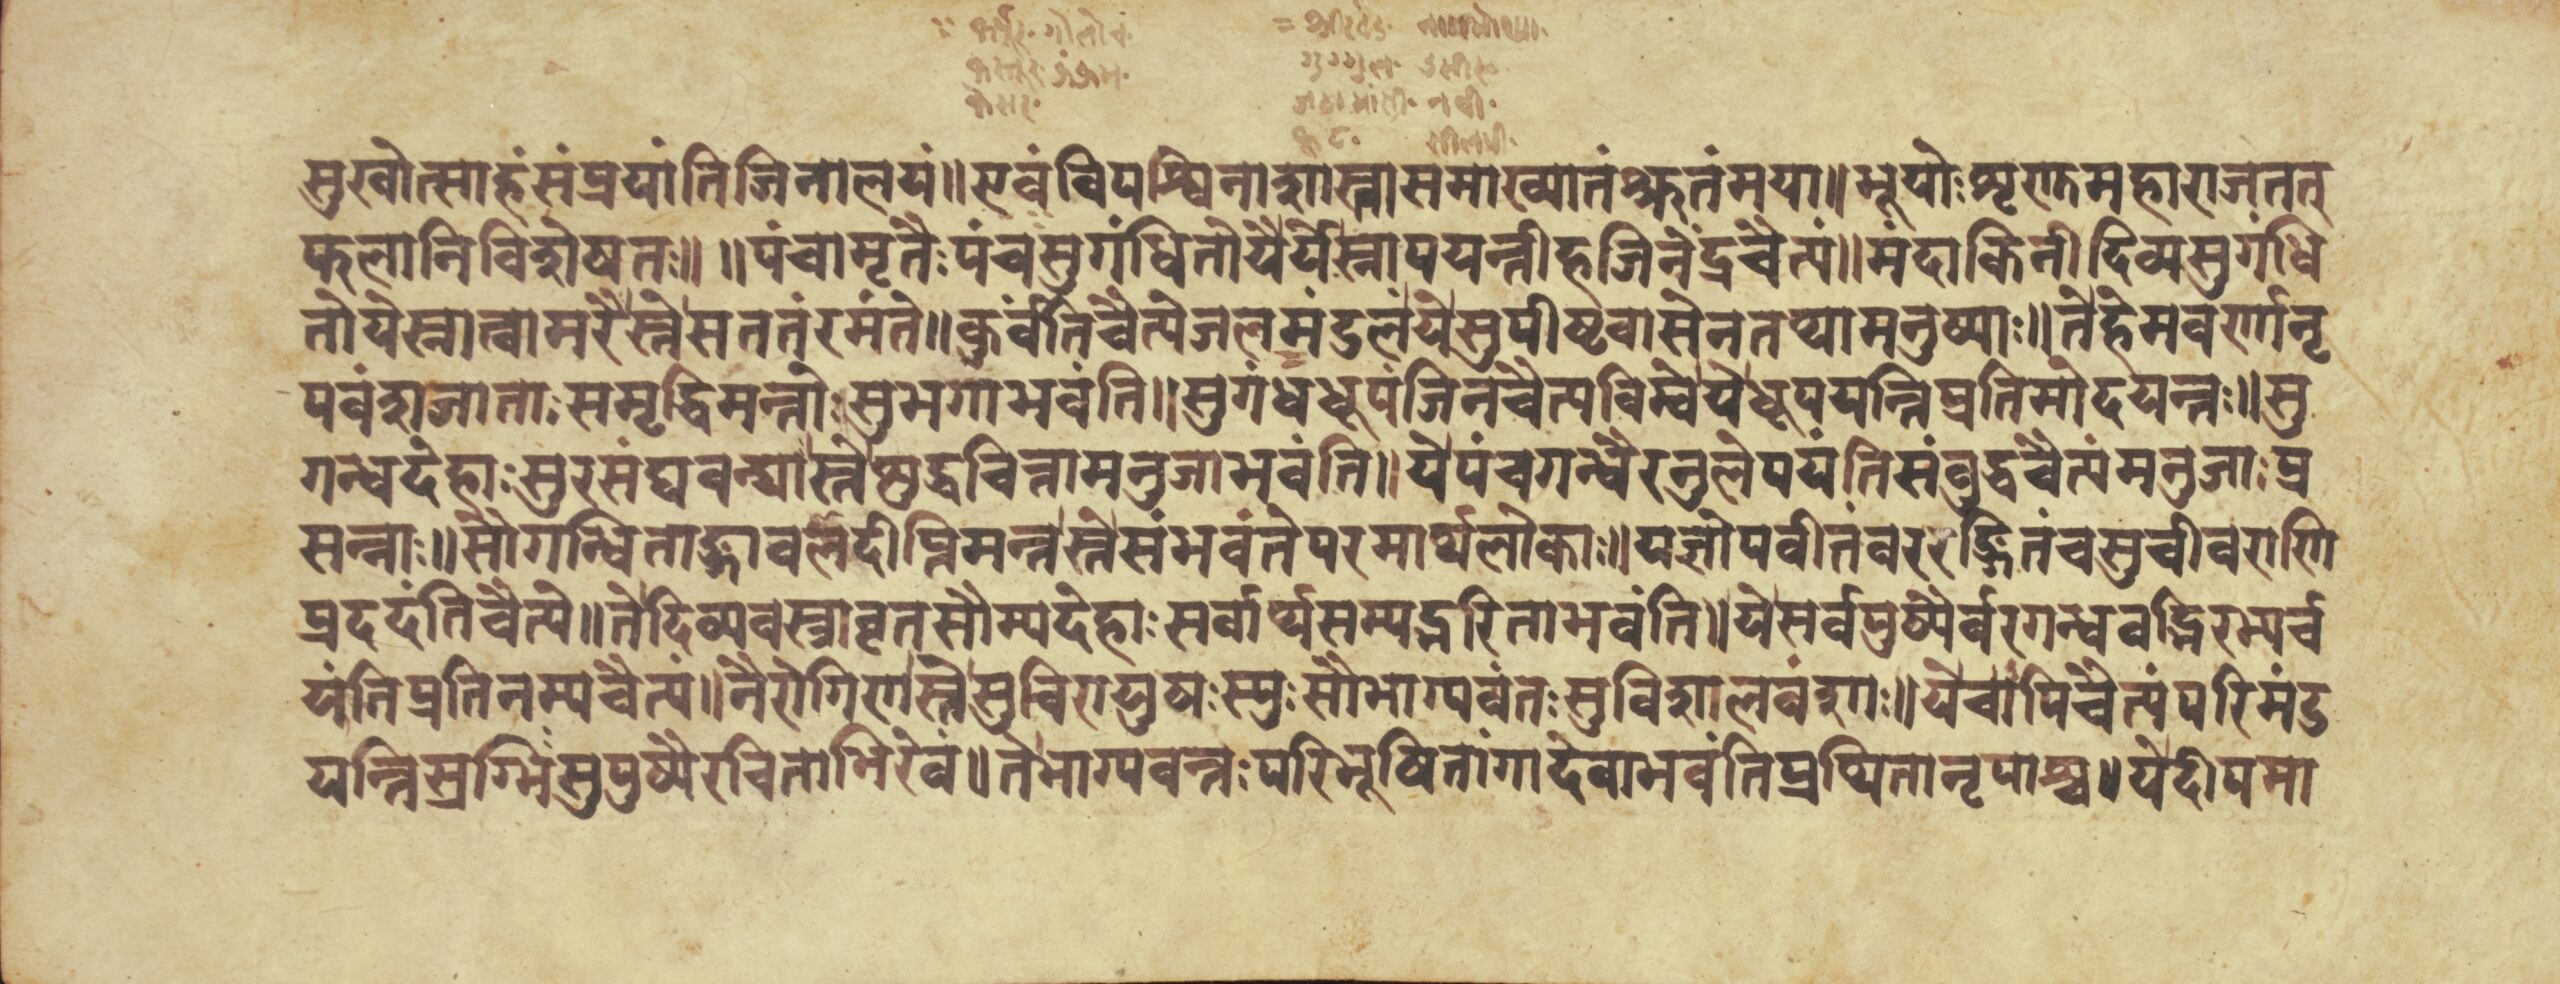 कर्पूर. गोलोचं.
कस्तुर. कुंकुम.
केसर.
गुग्गुल. उसीर.
जटामांसी. नखी.
सुखोत्साहं संप्रयांति जिनालयं॥ एवं विपश्चिना शास्त्रा समाख्यातं श्रुतं मया॥ भूयोः शृणु महाराज तत्
फलानि विशेषतः॥ ॥ पंचामृतैः पंचसुगंधितोयैर्ये स्नापयन्तीह जिनेंद्रचैत्यं॥ मंदाकिनीदिव्यसुगंधि
तोये स्नात्वामरैस्ते सततं रमंते॥ कुर्वंति चैत्ये जलमंडलं ये सुपीष्टवासेन तथा मनुष्याः॥ ते हेमवर्णा नृ
पवंशजाताः समृद्धिमन्तोः सुभगा भवंति॥ सुगंधधूपं जिनचैत्यविम्वे ये धूपयन्ति प्रतिमोदयन्तः॥ सु
गन्धदेहाः सुरसंघवन्द्यास्ते शुद्धचित्ता मनुजा भवंति॥ ये पंचगन्धैरनुलेपयंति संवुद्धचैत्यं मनुजाः प्र
सन्नाः॥ सौगन्धिताङ्गा वलदीप्तिमन्तस्ते संभवंते परमार्थलोकाः॥ यज्ञोपवीतं वररङ्गितं च सुचीवराणि
प्रददंति चैत्ये॥ ते दिव्यवस्त्रावृतसौम्यदेहाः सर्वार्थसम्पद्भरिता भवंति॥ ये सर्वपुष्पैर्वरगन्धवद्भिरभ्यर्च
यंति प्रतिनम्य चैत्यं॥ नैरोगिणास्ते सुचिरायुषः स्युः सौभाग्यवंतः सुविशालवंशाः॥ ये चापि चैत्यं परिमंड
यन्ति स्रग्भिः सुपुष्पै रचिताभिरेवं॥ ते भाग्यवन्तः परिभूषितांगा देवा भवंति प्रथिता नृपाश्च॥ ये दीपमा